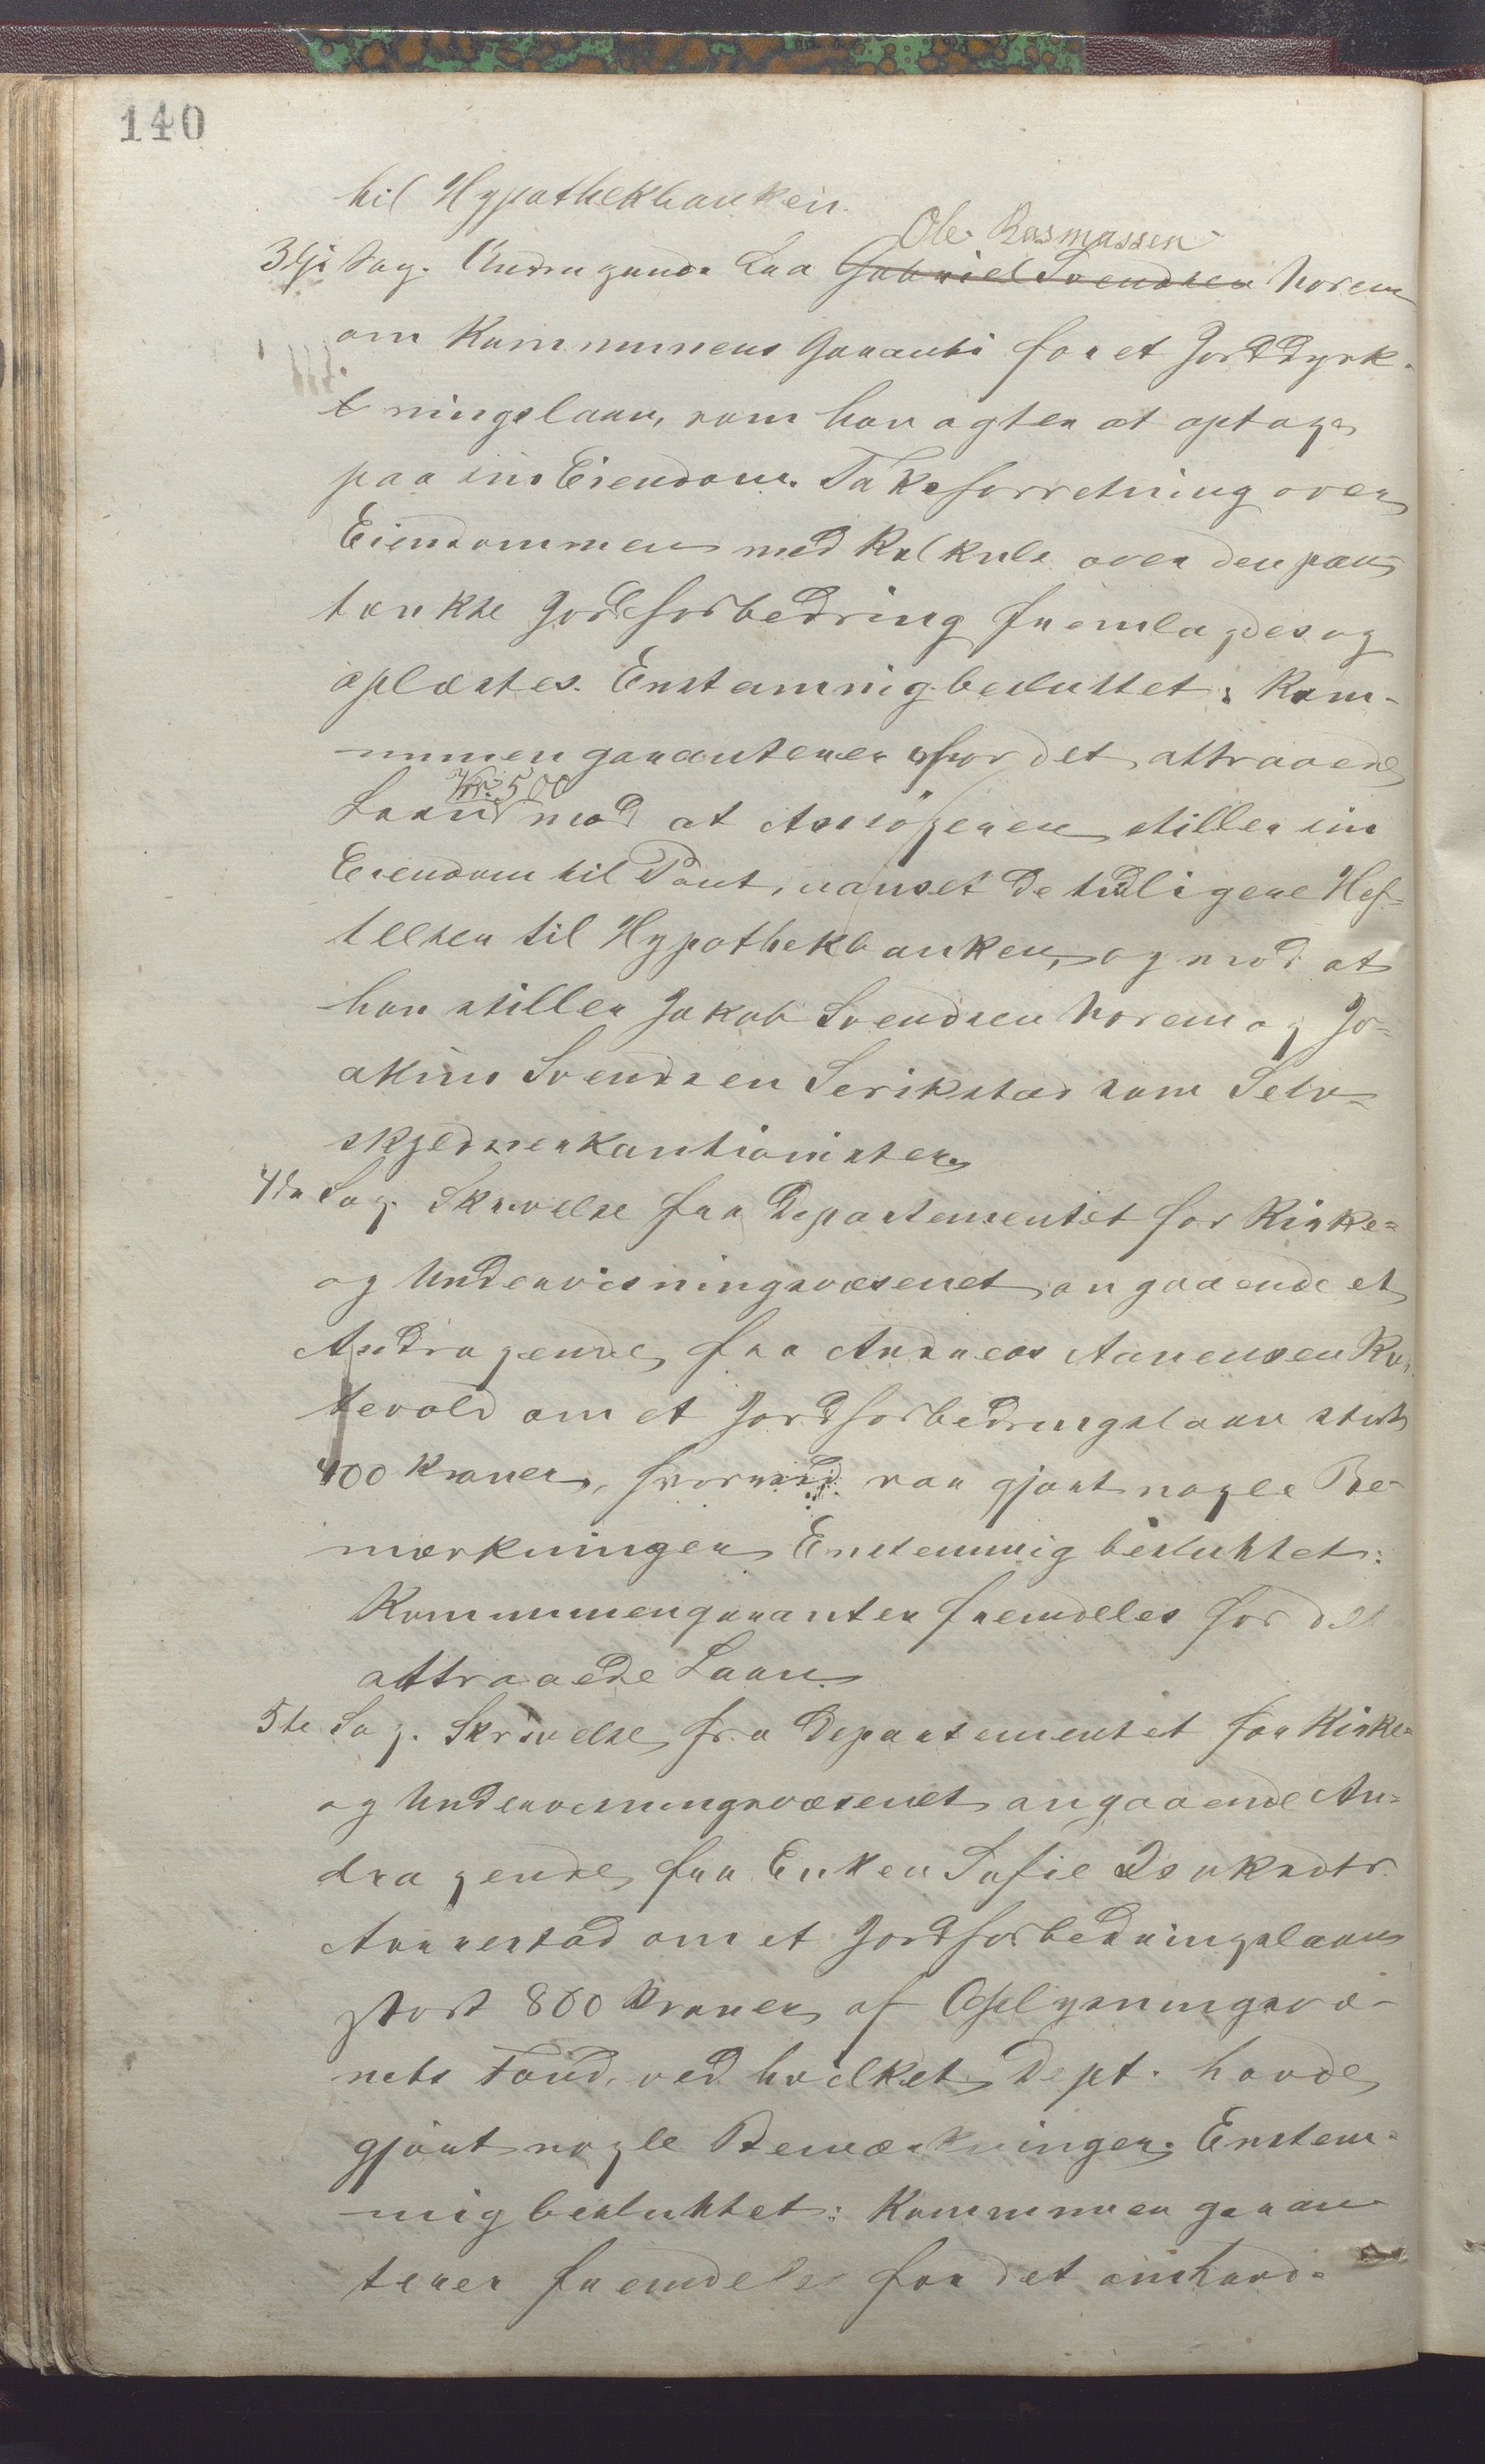 140
til Hypothekbanken.
Ole Rasmussen
3die Sag. Andragende fra Gabriel Svendsen Norem
om Kommunens Garanti for et Jorddyrk-
ningslaan, som han agter at optage
paa sin Eiendom. Taksforretning over
Eiendommen med Kalkule over den paa-
tænkte Jordforbedring fremlagdes og
oplæstes. Enstemmig besluttet: Kom-
munen garanterer for det attraaede
Kr. 500
Laan mod at Ansøgeren stiller sin
Eiendom til Pant, uanset de tidligere Hef-
telser til Hypothekbanken, og mod at
han stiller Jakob Svendsen Norem og Jo-
akim Svendsen Serikstad som Selv-
skyldnerkautionister.
4de Sag. Skrivelse fra Departementet for Kirke-
og Undervisningsvæsenet angaaende et
Andragende fra Andreas Aanensen
tevold om et Jordforbedringslaan stort
400 Kroner, hvorved var gjort nogle Be-
mærkninger. Enstemmig besluttet:
Kommunen garanterer fremdeles for det
attraaede Laan.
5te Sag. Skrivelse fra Departementet for Kirke-
og Undervisningsvæsenet angaaende An-
dragende fra Enken Sofie Isaksdtr.
Aanestad om et Jordforbedringslaan
stort 800 Kroner af Oplysningsvæ-
nets Fond, ved hvilket Dept. havde
gjort nogle Bemærkninger. Enstem-
mig besluttet: Kommunen garan-
terer fremdeles for det omhand-